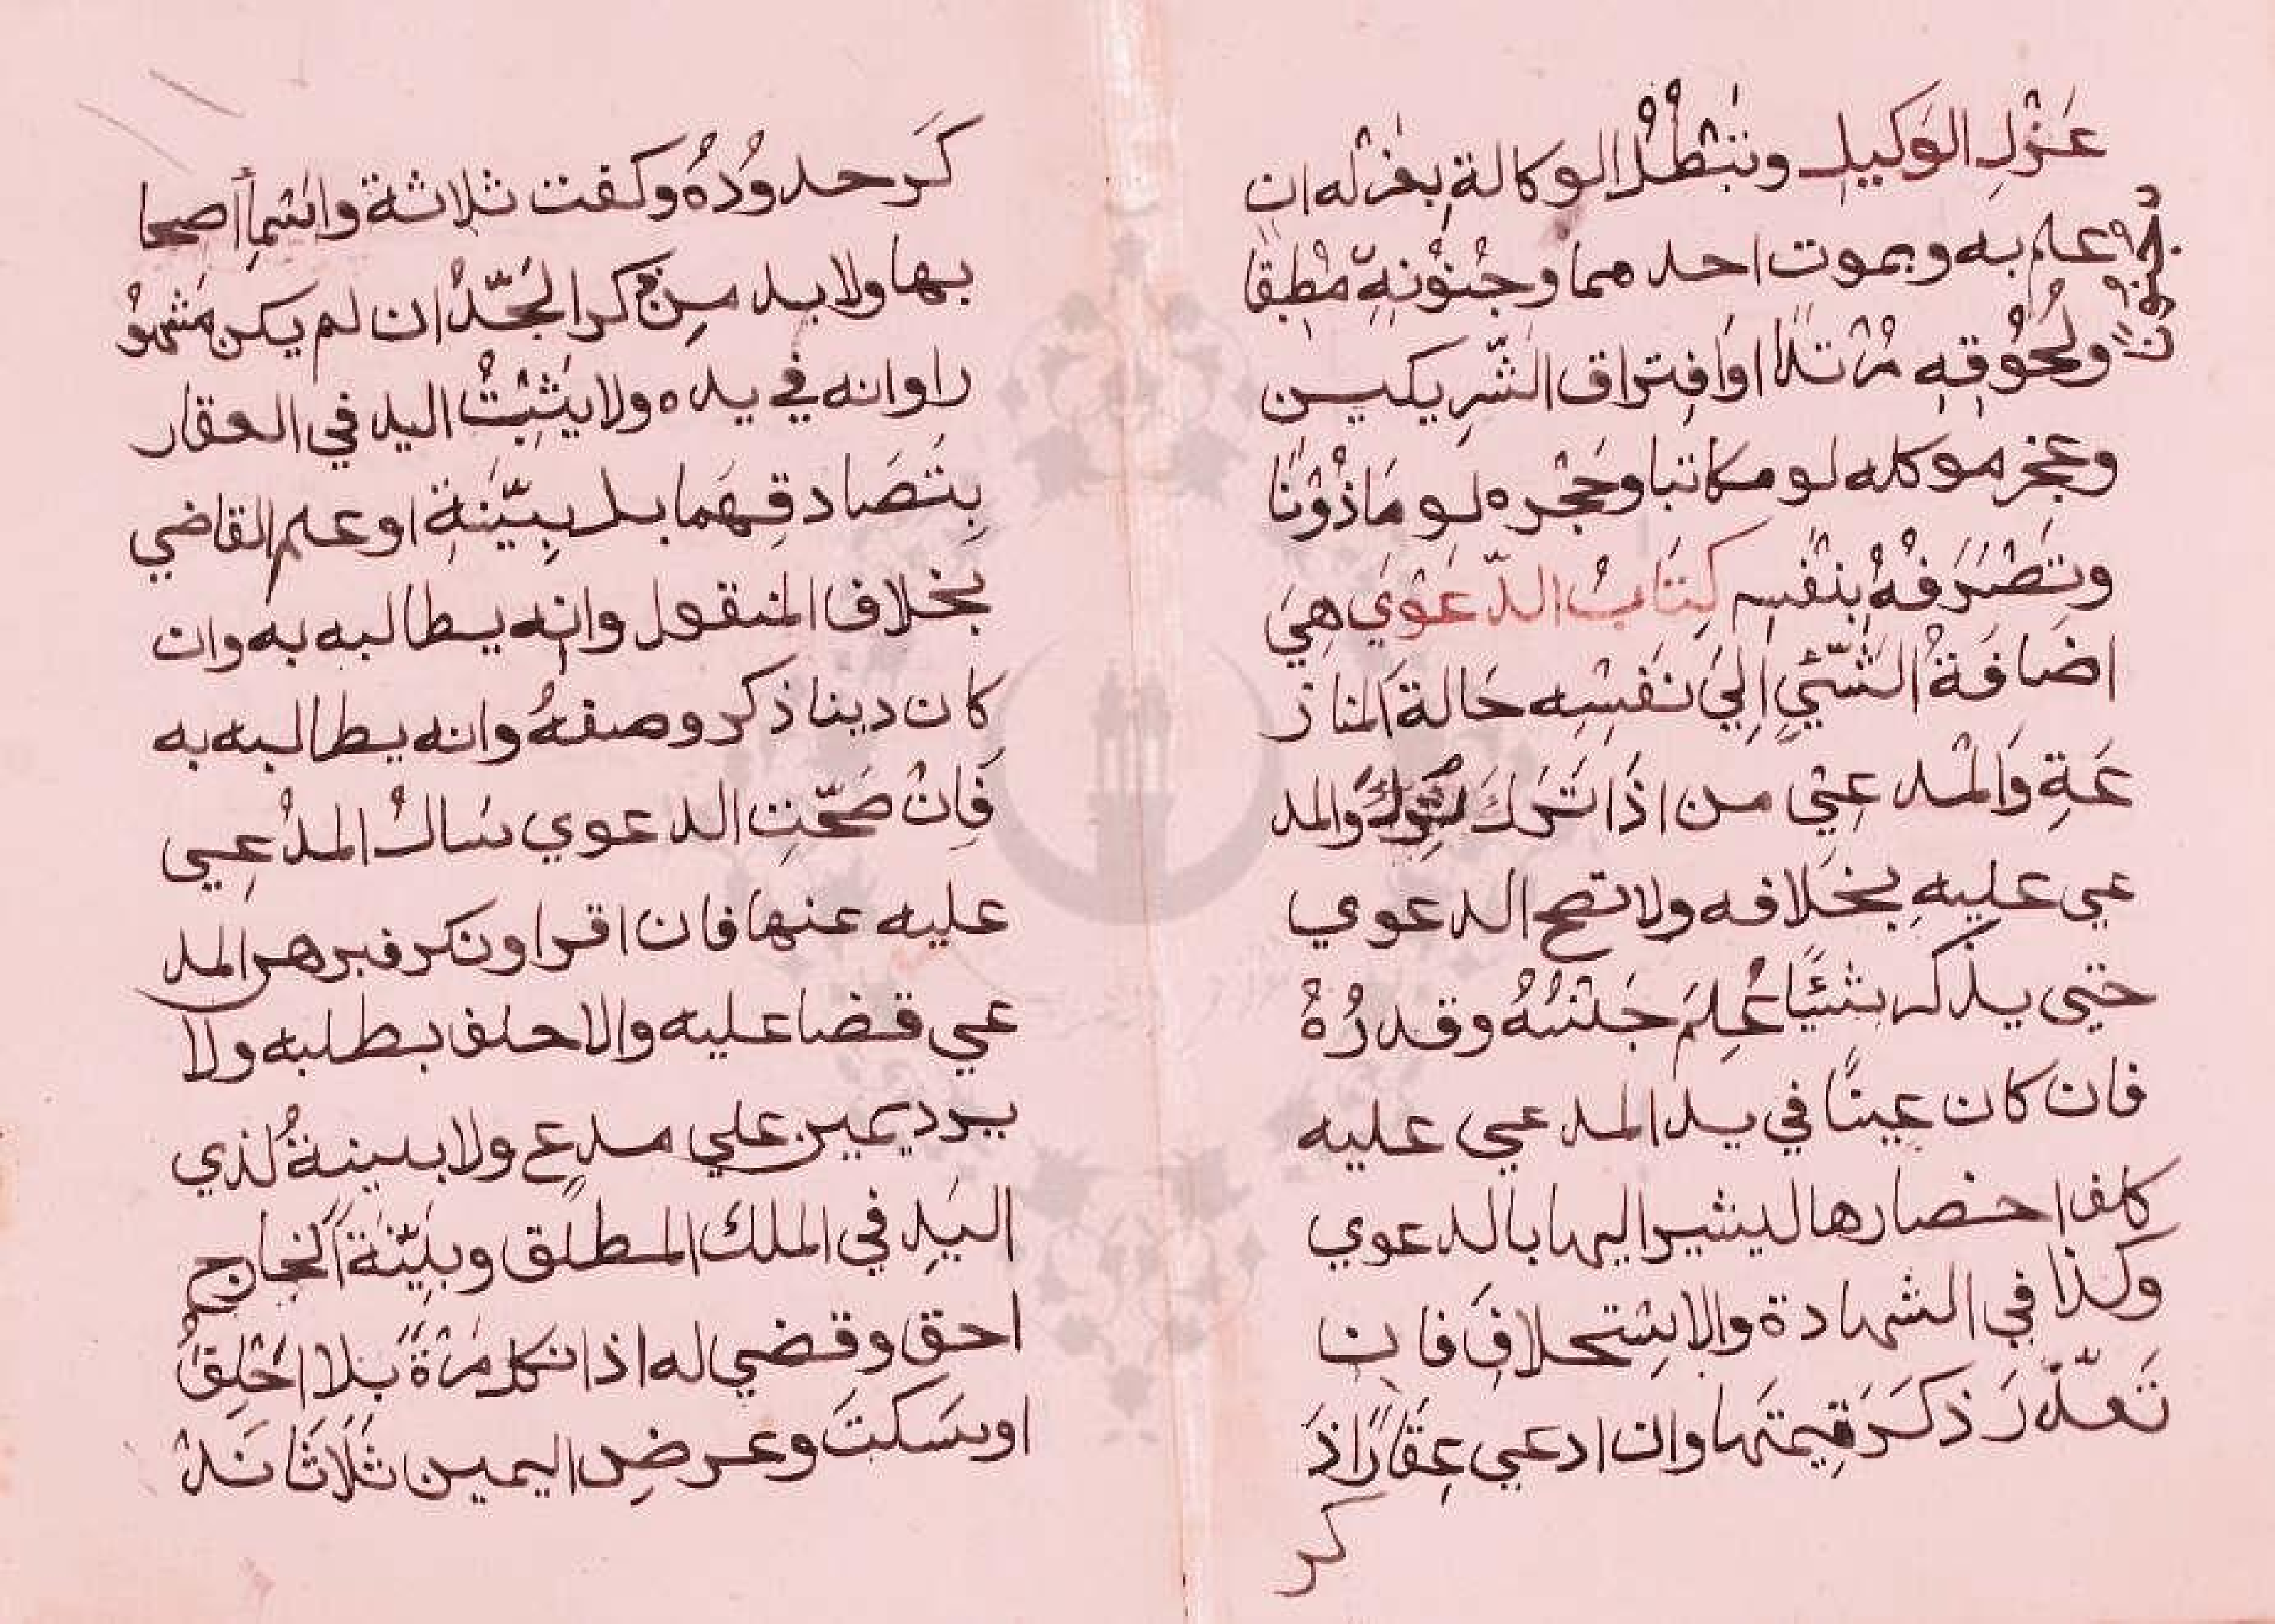 عَزْلِ الوَكيلِ وتَبْطُلُ الوكالة بِعَزْلِه ان
علم به وبموت احدهما وجُنُونِهِ مُطْبِقًا
ولُحُوقِهِ مُرْتدًا او افتِراق الشّرِيكين
وعجز موكله لو مكاتبا وحَجْره لو مَاذُوْنًا
وتَصَرَفُهُ بِنَفْسِه كِتَابُ الدّعَوْي هِيَ
اضَافَةُ الشّيْئِ اِلَي نَفْسِه حَالَةَ المناز
عَةِ وَالمْدعِي من اذَا تَرَكَ تُرِكَ وَالمد
عي عليهِ بخَلافه ولا تصح الدعوي
حتي يذكر شَيْئًا عُلِمَ جِنْسُهُ وقدرُهُ
فان كان عينًا في يد المدعي عليه
كلف احضارها ليشير اليها بالدعوي
وكذا في الشهادة والاسْتحلافِ فان
تَعذّرَ ذكَرَ قِيمتَها وان ادعي عقَارًا ذَ
كر
كَر حدودُهُ وكفت ثلاثة واسْمآ أصحا
بها ولا بد من ذكر الجَدّ ان لم يكن مَشهُو
را وانه في يده ولا يَثْبِتُ اليد في العقار
بِتَصَادقِهَما بل بِبيّنَةِ او علم القاضي
بخلاف المنقول وانه يطالبه به وان
كان دينا ذكر وصفهُ وانه يطالبه به
فَاِنْ صَحّتِ الدعوي سالُ المدْعِي
عليه عنها فان اقر او نكر فبرهن المد
عي قضا عليه والا حلف بطلبه ولا
يرد يمين علي مدعِ ولا بينةُ لذي
اليَدِ في الملك المطلق وبَيِّنَةَ الخارج
احق وقضي له اذا نكل مَرّةً بلا احْلِفُ
او سَكتَ وعرضِ اليمين ثَلَاثًا نَدْ